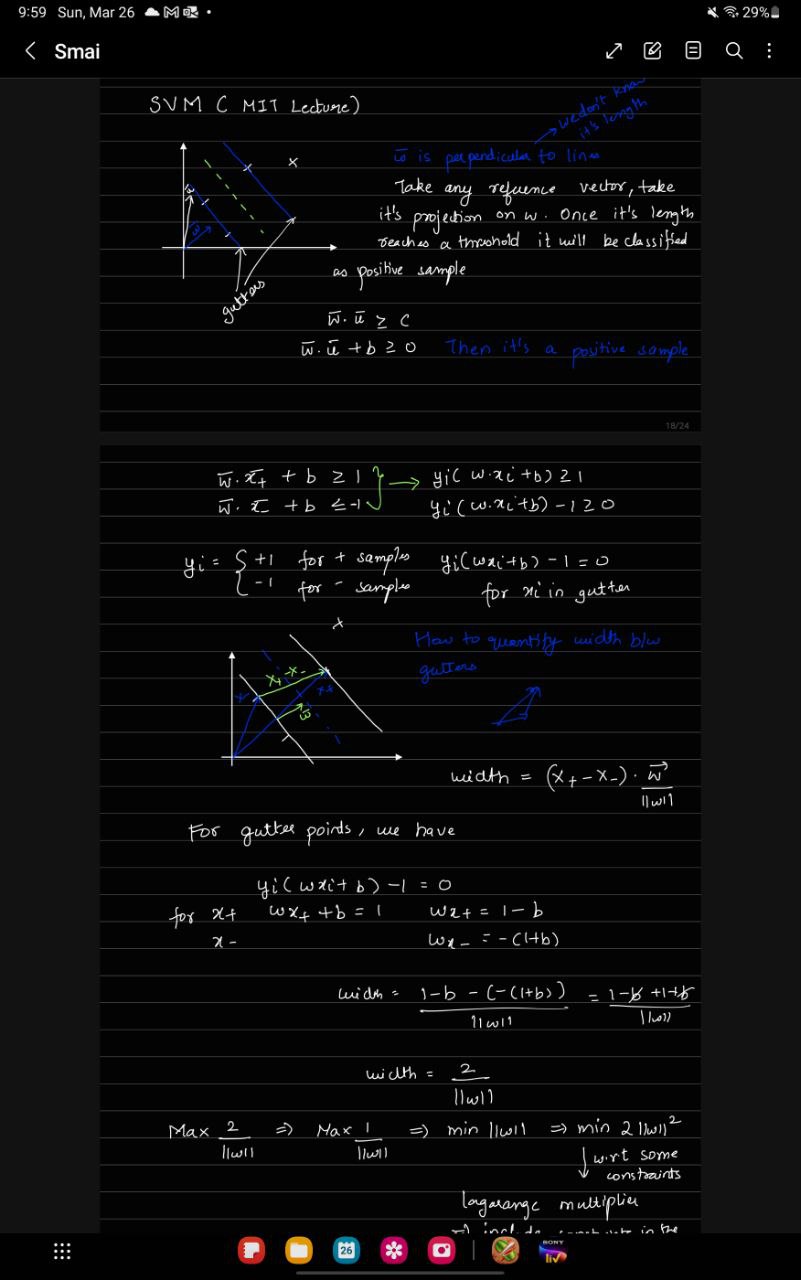 9:59 Sun, Mar 26
29%
Smai
SVM ( MIT Lecture)
we don't know
it's length
w̄ is perpendicular to line
Take any refuence vector, take
it's projection on w. Once it's length
reaches a threshold it will be classified
as positive sample
gutters
w̄. ū ≥ C
w̄. ū + b ≥ 0 Then it's a positive sample
18/24
w̄. x̄₊ + b ≥ 1 } → yi( w.xi+b) ≥ 1
w̄. x̄₋ + b ≤ -1 yi(w.xi+b) - 1 ≥ 0
yi = { +1 for + samples yi(wxi+b) - 1 = 0
-1 for - samples for xi in gutter
How to quantify width b/w
gutters
x₊-x₋
x₊
w̄
width = (x₊-x₋). w⃗ / ||w||
For gutter points, we have
yi( wxi+b) -1 = 0
for x+ wx₊+b = 1 wx+ = 1-b
x- wx- = -(1+b)
width = 1-b -(-(1+b)) / ||w|| = 1-b+1+b / ||w||
width = 2 / ||w||
Max 2/||w|| ⇒ Max 1/||w|| ⇒ min ||w|| ⇒ min 2||w||²
↓ w.r.t some
constraints
lagarange multiplier
26
SONY
liv